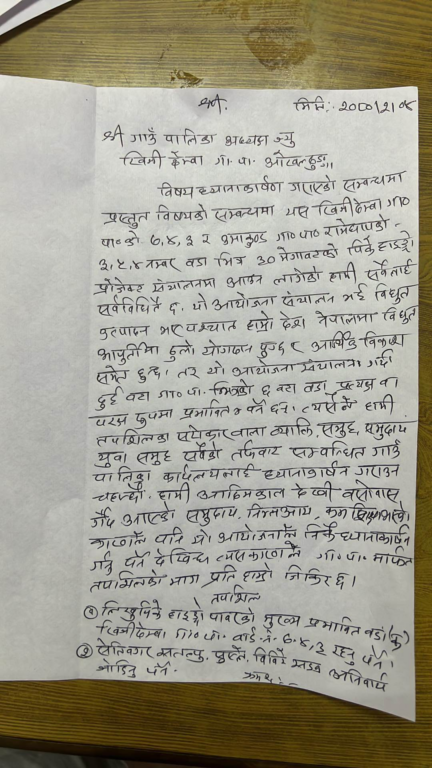 श्री.
मिति:- २०८०/२/०४
श्री गाउँ पालिका अध्यक्ष ज्यु
खिजी देम्बा गा. पा. ओखलढुङ्गा
विषय ध्यानाकार्षण गराएको सम्बन्धमा
प्रस्तुत विषयको सम्बन्धमा यस खिजीदेम्बा गा०
पा०को ७,४,३ र उमाकुण्ड गा०पा० रामेछापको
३,२,४ नम्बर वडा भित्र ३० मेगावाटको पिर्के हाइड्रो
प्रोजेक्ट संचालनमा आउन लागेको हामी सबैलाई
सर्वविधितै छ. यो आयोजना संचालन भई विद्युत
उत्पादन भए पश्चात हाम्रो देश नेपालमा विद्युत
आपुर्तिमा ठुलो योगदान पुग्छ र आर्थिक विकास
समेत हुन्छ। तर यो आयोजना संचालन गर्दा
दुई वटा गा० पा. भित्रको ६ वटा वडा प्रत्यक्ष वा
परोक्ष रुपमा प्रभावित बन्ने छन्. त्यसैले हामी
तपशिलका सरोकारवाला व्यक्ति, समुह, समुदाय
युवा समुह सबैको तर्फबाट सम्बन्धित गाउँ
पालिका कार्यलयलाई ध्यानाकार्षन गराउन
चहान्छौ. हामी आदिमकाल देखी बसोवास
गर्दै आएको समुदाय,
कारणले पनि यो आयोजनाले ध्यानाकार्षन
गर्नु पर्ने देखिन्छ त्यसकारणले गा० पा. मार्फत
तपाशिलको माग प्रति हाम्रो जिकिर छ।
तपाशिल
१ लिखु पिर्के हाइड्रो पावरको मुख्य प्रभावित वडा
खिजीदेम्बा गा० पा. वार्ड नं. ७,४,३ रहनु पर्ने।
२
जोडिनु पर्ने.
क्रमश:-